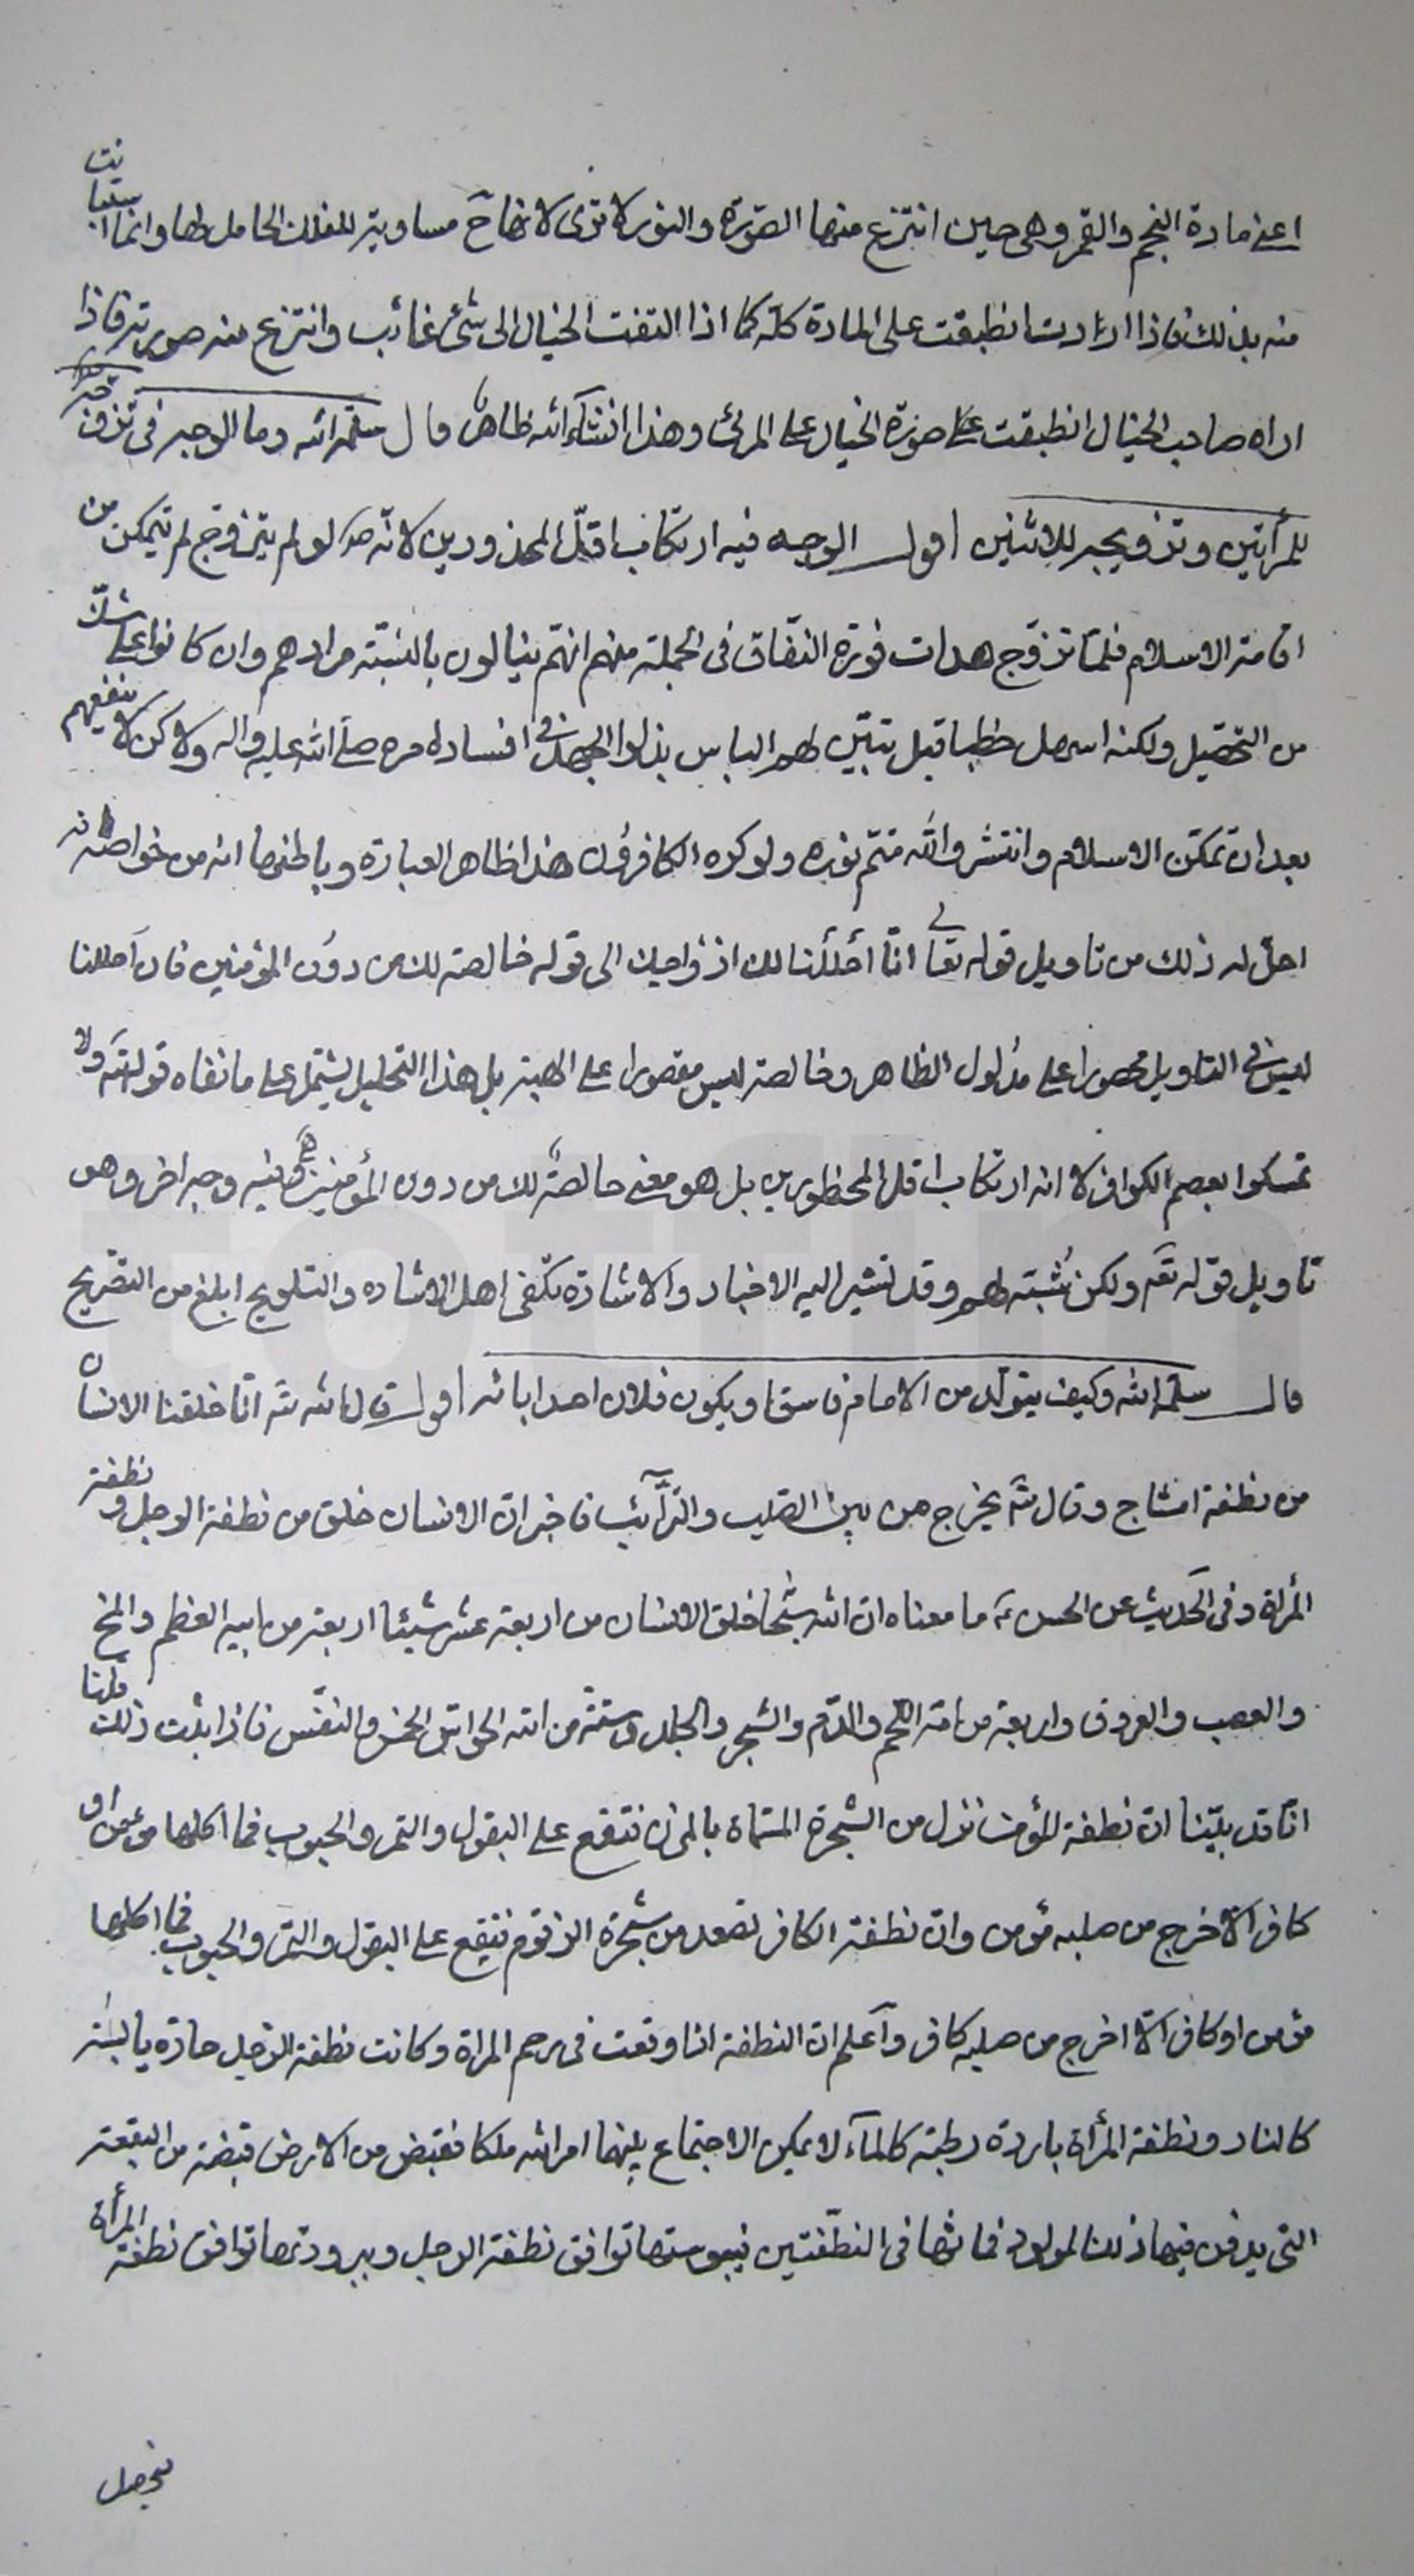 اعنى مادة النجم والقمر وهى حين انتزع منها الصّورة والنور لا ترى لانها ح مساوية للفلك الحامل لها وانما استبانت
منه بذلك فاذا ارادت انطبقت على المادة كلّه كما اذا التفت الخيال الى شئ غائب وانتزع منه صورته فاذا
اراه صاحب الخيال انطبقت على صورة الخيال على المرئى وهذا انشاء الله ظاهر قال سلّمه الله وما الوجه فى تزوّجه
للمرأتين وتزويجه للاثنين اقول الوجه فيه ارتكاب اقلّ المحذورين لانّه ص لو لم يتزوّج لم يتمكن من
اقامة الاسلام فلمّا تزوّج هدات فورة النّفاق فى الجملة منهم انهّم ينالون بالنسّبة مرادهم وان كانوا على شكّ
من التّحصّيل ولكنه اسهل خطبا قبل تبيّن لهم الياس بذلوا الجهد فى افساد امره صلّى الله عليه واله ولا كن لا ينفعهم
بعد ان تمكّن الاسلام وانتشر والله متمّ نوره ولو كره الكافرون هذا ظاهر العبارة وباطنها انه من خواصّه انه
احلّ له ذلك من تاويل قوله تعالى انّا أحْلَلْنا لك ازْواجك الى قوله خالصة لك من دوُن المؤمنين فان احللنا
ليس فى التاويل محصورا على مدْلول الظاهر وخالصة ليس مقصورا على الهبة بل هذا التحليل يشتمل على ما نفاه قوله تع ولا
تمسكوا بعصم الكوافر لا انه ارتكاب اقل المحظورين بل هو معنى خالصة لك من دون المؤمنين وفيه وجه اخر وهو
تاويل قوله تع ولكن شُبّه لهم وقد تشير اليه الاخبار والاشارة تكفى اهل الاشاره والتلويح ابلغ من التصّريح
قال سلّمه الله وكيف يتولّد من الامام فاسق او يكون فلان احد ابائه اقول قال الله تع انّا خلقنا الانسان
من نطفة امشاج وقال تع يخرج من بين الصّلب والترّآئب فاخبر انّ الانسان خلق من نطفة الرجل ونطفة
المرأة وفى الحديث عن الحسن ع ما معناه ان الله سبحانه خلق الانسان من اربعة عشر شيئا اربعة من ابيه العظم والمخ
والعصب والعروق واربعة من امّه اللّحم والدّم والشعر والجلد وستّة من الله الحواسّ الخمس والنفّس فاذا ثبت ذلك قلنا
انّا قد بيّنّا انّ نطفة المؤمن تنزل من الشّجرة المسّماة بالمزن فتقع على البقول والثمر والحبوب فما اكلها مؤمن او
كافر الّا خرج من صلبه مؤمن وانّ نطفة الكافر تصعد من شجرة الزقوم فتقع على البقول والثمر والحبوب فما اكلها
مؤمن او كافر الّا اخرج من صلبه كافر واعلم انّ النطفة اذا وقعت فى رحم المراة وكانت نطفة الرّجل حارّة يابسة
كالنار ونطفة المرأة باردة رطبة كالمآء لا يمكن الاجتماع بينهما امر الله ملكا فقبض من الارض قبضة من البقعة
التى يدفن فيها ذلك المولود فماثها فى النطّفتين فيبوستها توافق نطفة الرجل وببرودتها توافق نطفة المرأة
فيحصل